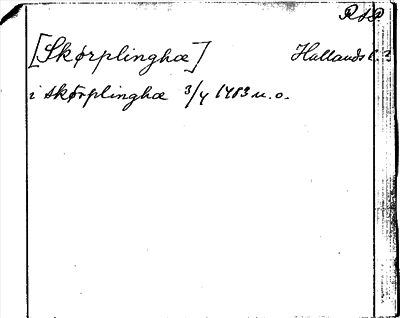 [Skørplinghæ] Hallands l. 3
i skørplinghæ 3/4 1483 u. o.